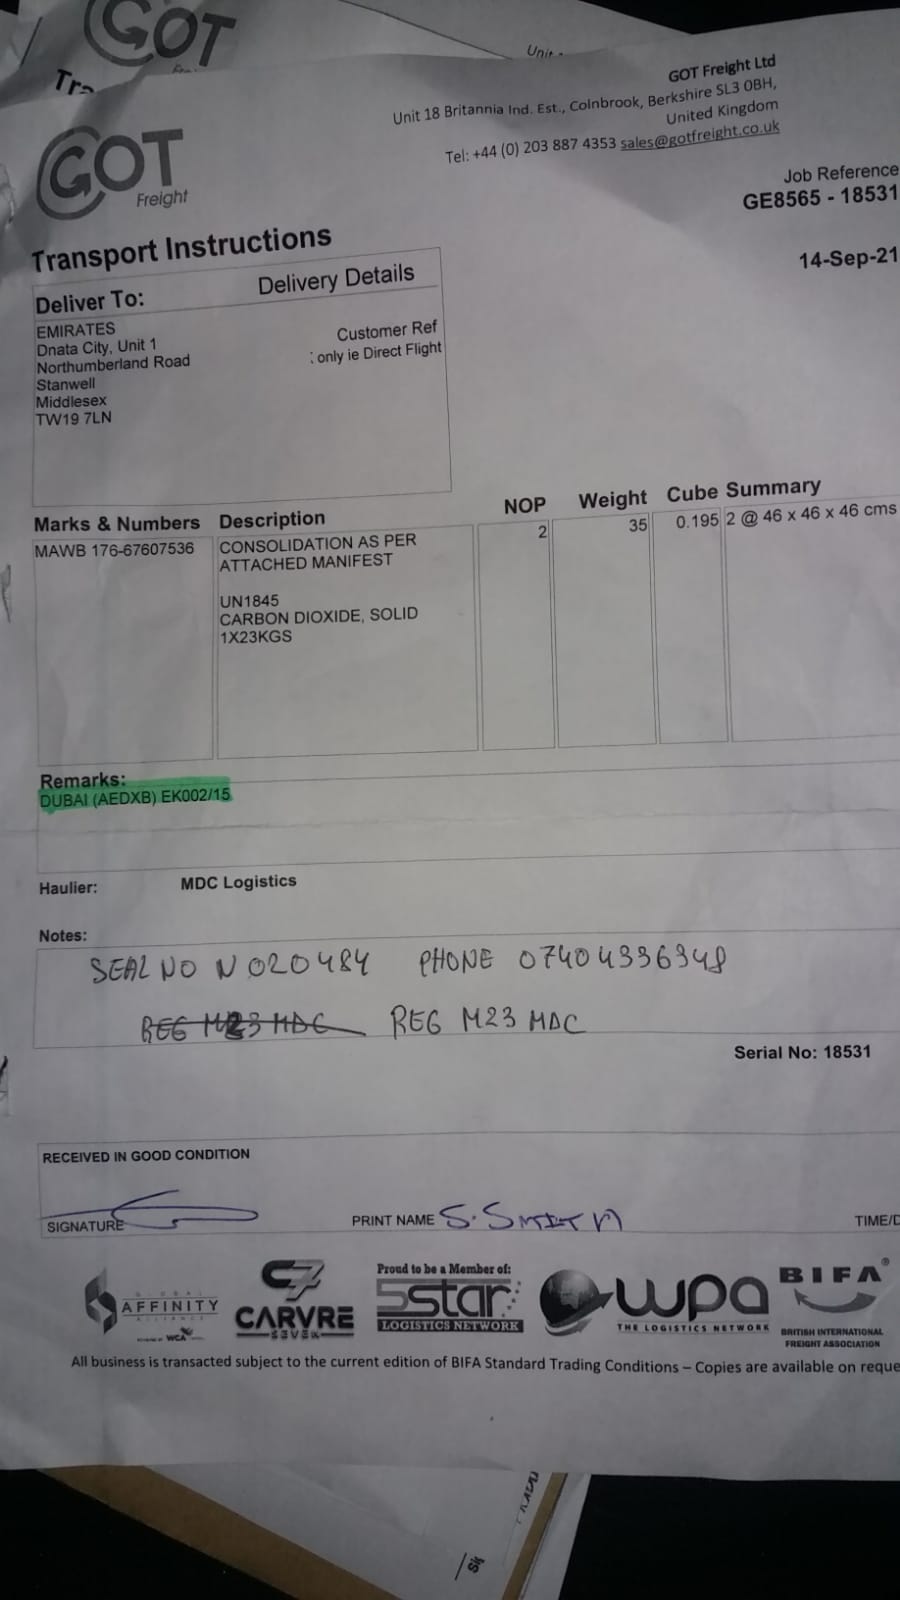 GOT
Unit
GOT Freight Ltd
Unit 18 Britannia Ind. Est., Colnbrook, Berkshire SL3 0BH,
United Kingdom
Tel: +44 (0) 203 887 4353 sales@gotfreight.co.uk
GOT
Freight
Job Reference
GE8565 - 18531
14-Sep-21
Transport Instructions
Deliver To: Delivery Details
EMIRATES
Dnata City, Unit 1
Northumberland Road
Stanwell
Middlesex
TW19 7LN
Customer Ref
: only ie Direct Flight
Marks & Numbers Description NOP Weight Cube Summary
MAWB 176-67607536 CONSOLIDATION AS PER 2 35 0.195 2 @ 46 x 46 x 46 cms
ATTACHED MANIFEST
UN1845
CARBON DIOXIDE, SOLID
1X23KGS
Remarks:
DUBAI (AEDXB) EK002/15
Haulier: MDC Logistics
Notes:
SEAL NO N020484 PHONE 07404336348
REG M23 MDC REG M23 MDC
Serial No: 18531
RECEIVED IN GOOD CONDITION
SIGNATURE PRINT NAME S. SMITH TIME/D
GLOBAL
AFFINITY
ALLIANCE
WCA
C7
CARVRE
SEVEN
Proud to be a Member of:
5star
LOGISTICS NETWORK
wpa
THE LOGISTICS NETWORK
BIFA
BRITISH INTERNATIONAL
FREIGHT ASSOCIATION
All business is transacted subject to the current edition of BIFA Standard Trading Conditions – Copies are available on reque